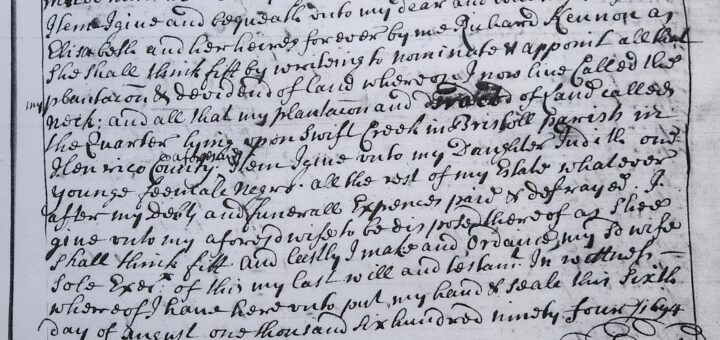 Item I give and bequeath unto my dear and
Elisabeth and her heires for ever by me Richard Kennon as
She shall think fitt by writeing to nominate & appoint all that
my plantacon & devidend of land where on I now live Called the
Neck: and all that my plantacon and tract of Land called
the Quarter lying upon Swift Creek in Bristoll parish in
Henrico County aforesaid Item I give unto my Daughter Judith one
younge feemale Negro. all the rest of my Estate whatever
after my Debts and funerall Expences paid & defrayed I
give unto my aforesd wife to be dispose thereof as Shee
Shall think fitt and lastly I make and Ordaine my sd wife
Sole Exec: of this my last will and testamt: In wittness
whereof I have here unto put my hand & seale this Sixth
day of August one thousand Six hundred ninety four 1694